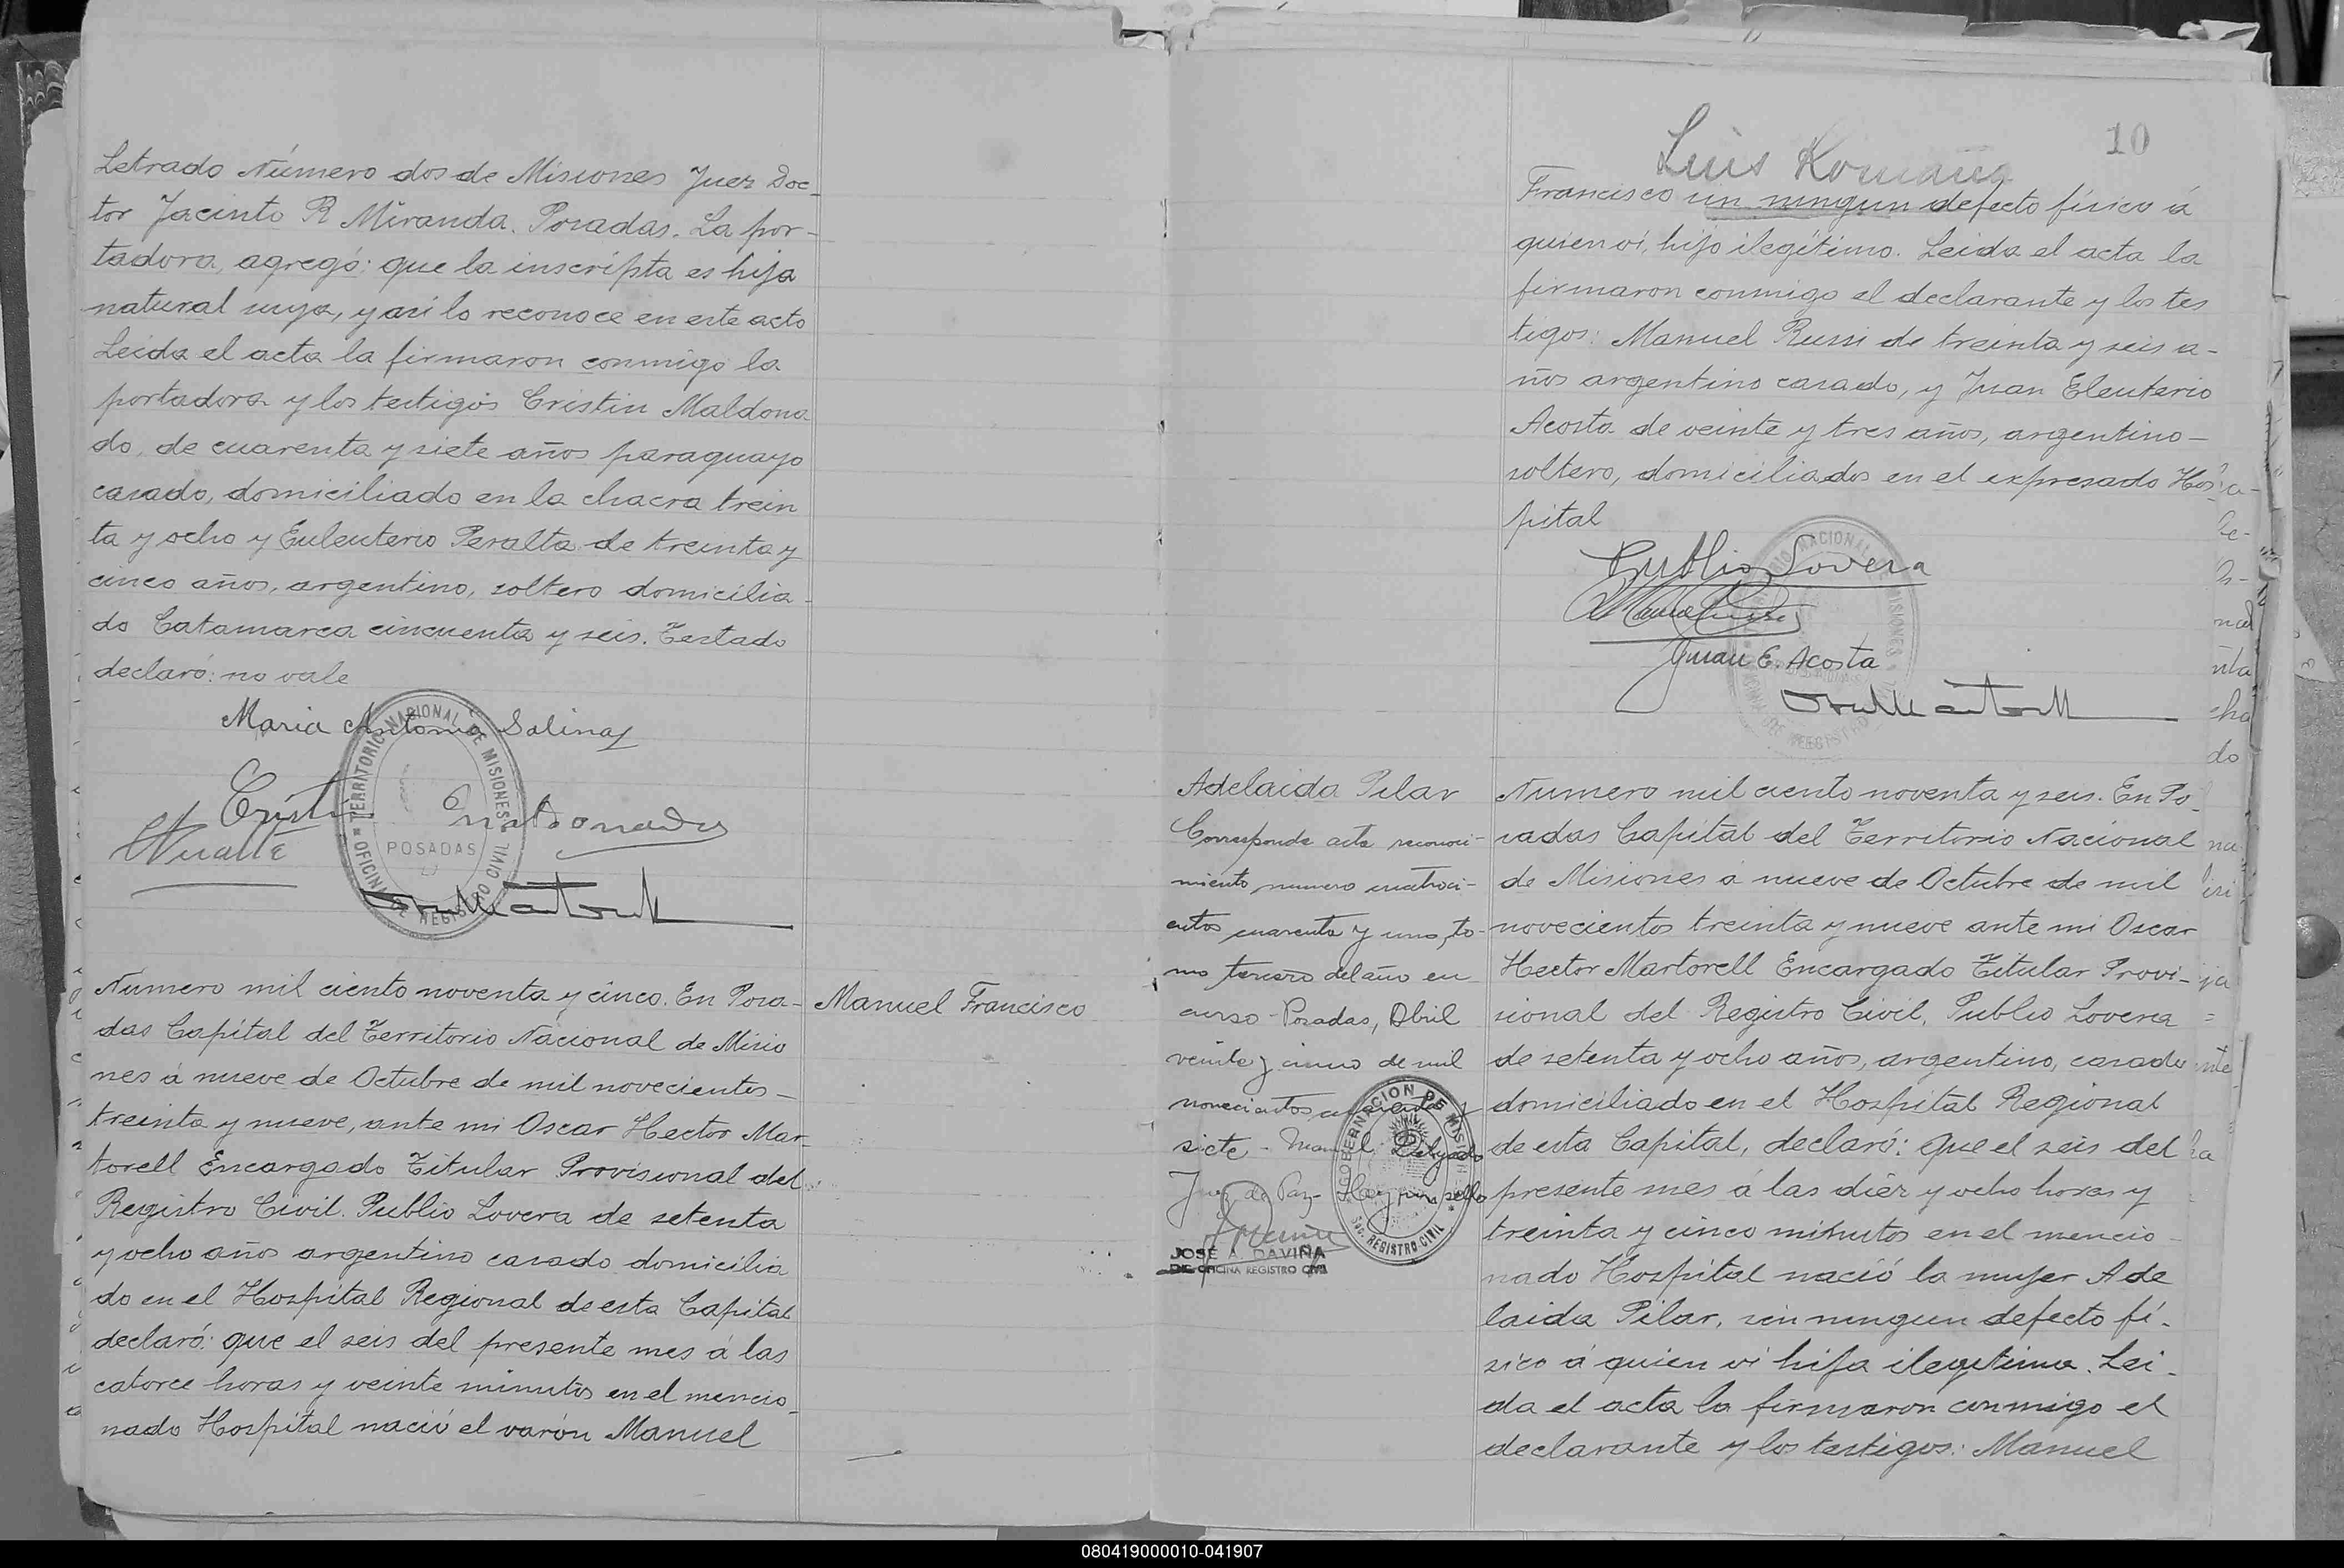 Letrado Número dos de Misiones Juez Doc-
tor Jacinto R Miranda. Posadas. La por-
tadora, agregó: que la inscripta es hija
natural suya, y así lo reconoce en este acto
Leida el acta la firmaron conmigo la
portadora y los testigos Cristin Maldona
do, de cuarenta y siete años paraguayo
casado, domiciliado en la chacra trein
ta y ocho y Euleuterio Peralta de treinta y
cinco años, argentino, soltero domicilia-
do Catamarca cincuenta y seis. Testado
declaró: no vale
Maria Antonia Salinas
Cristin Maldonado
TERRITORIO NACIONAL DE MISIONES
POSADAS
OFICINA DE REGISTRO CIVIL
Numero mil ciento noventa y cinco. En Posa-
das Capital del Territorio Nacional de Misio
nes á nueve de Octubre de mil novecientos-
treinta y nueve, ante mi Oscar Hector Mar-
torell Encargado Titular Provisional del
Registro Civil. Publio Lovera de setenta
y ocho años argentino casado domicilia
do en el Hospital Regional de esta Capital
declaró: que el seis del presente mes á las
catorce horas y veinte minutos en el mencio-
nado Hospital nació el varón Manuel
Manuel Francisco
10
Luis Romaña
Francisco sin ningun defecto físico á
quien ví, hijo ilegítimo. Leida el acta la
firmaron conmigo el declarante y los tes
tigos: Manuel Russi de treinta y seis a-
ños argentino casado, y Juan Eleuterio
Acosta de veinte y tres años, argentino-
soltero, domiciliados en el expresado Hos-
pital
Publio Lovera
Juan E. Acosta
Adelaida Pilar
Corresponde acta reconoci-
miento numero cuatroci-
entos cuarenta y uno, to-
mo tercero del año en
curso - Posadas, Abril
veinte y cinco de mil
novecientos cuarenta y
siete - Manuel Delgado
Juez de Paz - Hay un sello
GOBERNACION DE MISIONES
SEC. REGISTRO CIVIL
JOSÉ A. DAVIÑA
OFICINA REGISTRO CIVIL
Numero mil ciento noventa y seis. En Po-
sadas Capital del Territorio Nacional
de Misiones á nueve de Octubre de mil
novecientos treinta y nueve ante mi Oscar
Hector Martorell Encargado Titular Provi-
sional del Registro Civil, Publio Lovera
de setenta y ocho años, argentino, casado
domiciliado en el Hospital Regional
de esta Capital, declaró: que el seis del
presente mes á las diez y ocho horas y
treinta y cinco minutos en el mencio-
nado Hospital nació la mujer Ade
laida Pilar, sin ningun defecto fí-
sico á quien ví hija ilegítima. Lei-
da el acta la firmaron conmigo el
declarante y los testigos: Manuel
080419000010-041907